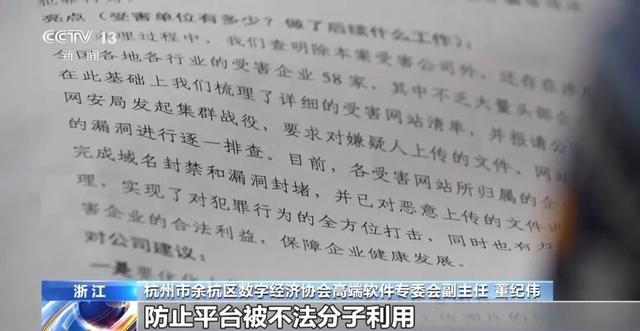 CCTV 13
新闻
亮点（受害单位有多少？做了后续什么工作）：
理过程中，我们查明除本案受害公司外，还存在涉及
全国各地各行业的受害企业58家，其中不乏大量头部企
在此基础上我们梳理了详细的受害网站清单，并报请公
网安局发起集群战役，要求对嫌疑人上传的文件、网站
的漏洞进行逐一排查。目前，各受害网站所归属的企
完成域名封禁和漏洞封堵，并已对恶意上传的文件进
理，实现了对犯罪行为的全方位打击，同时也有力
害企业的合法利益，保障企业健康发展。
对公司建议：
一是要优化
浙江
杭州市余杭区数字经济协会高端软件专委会副主任 董纪伟
防止平台被不法分子利用